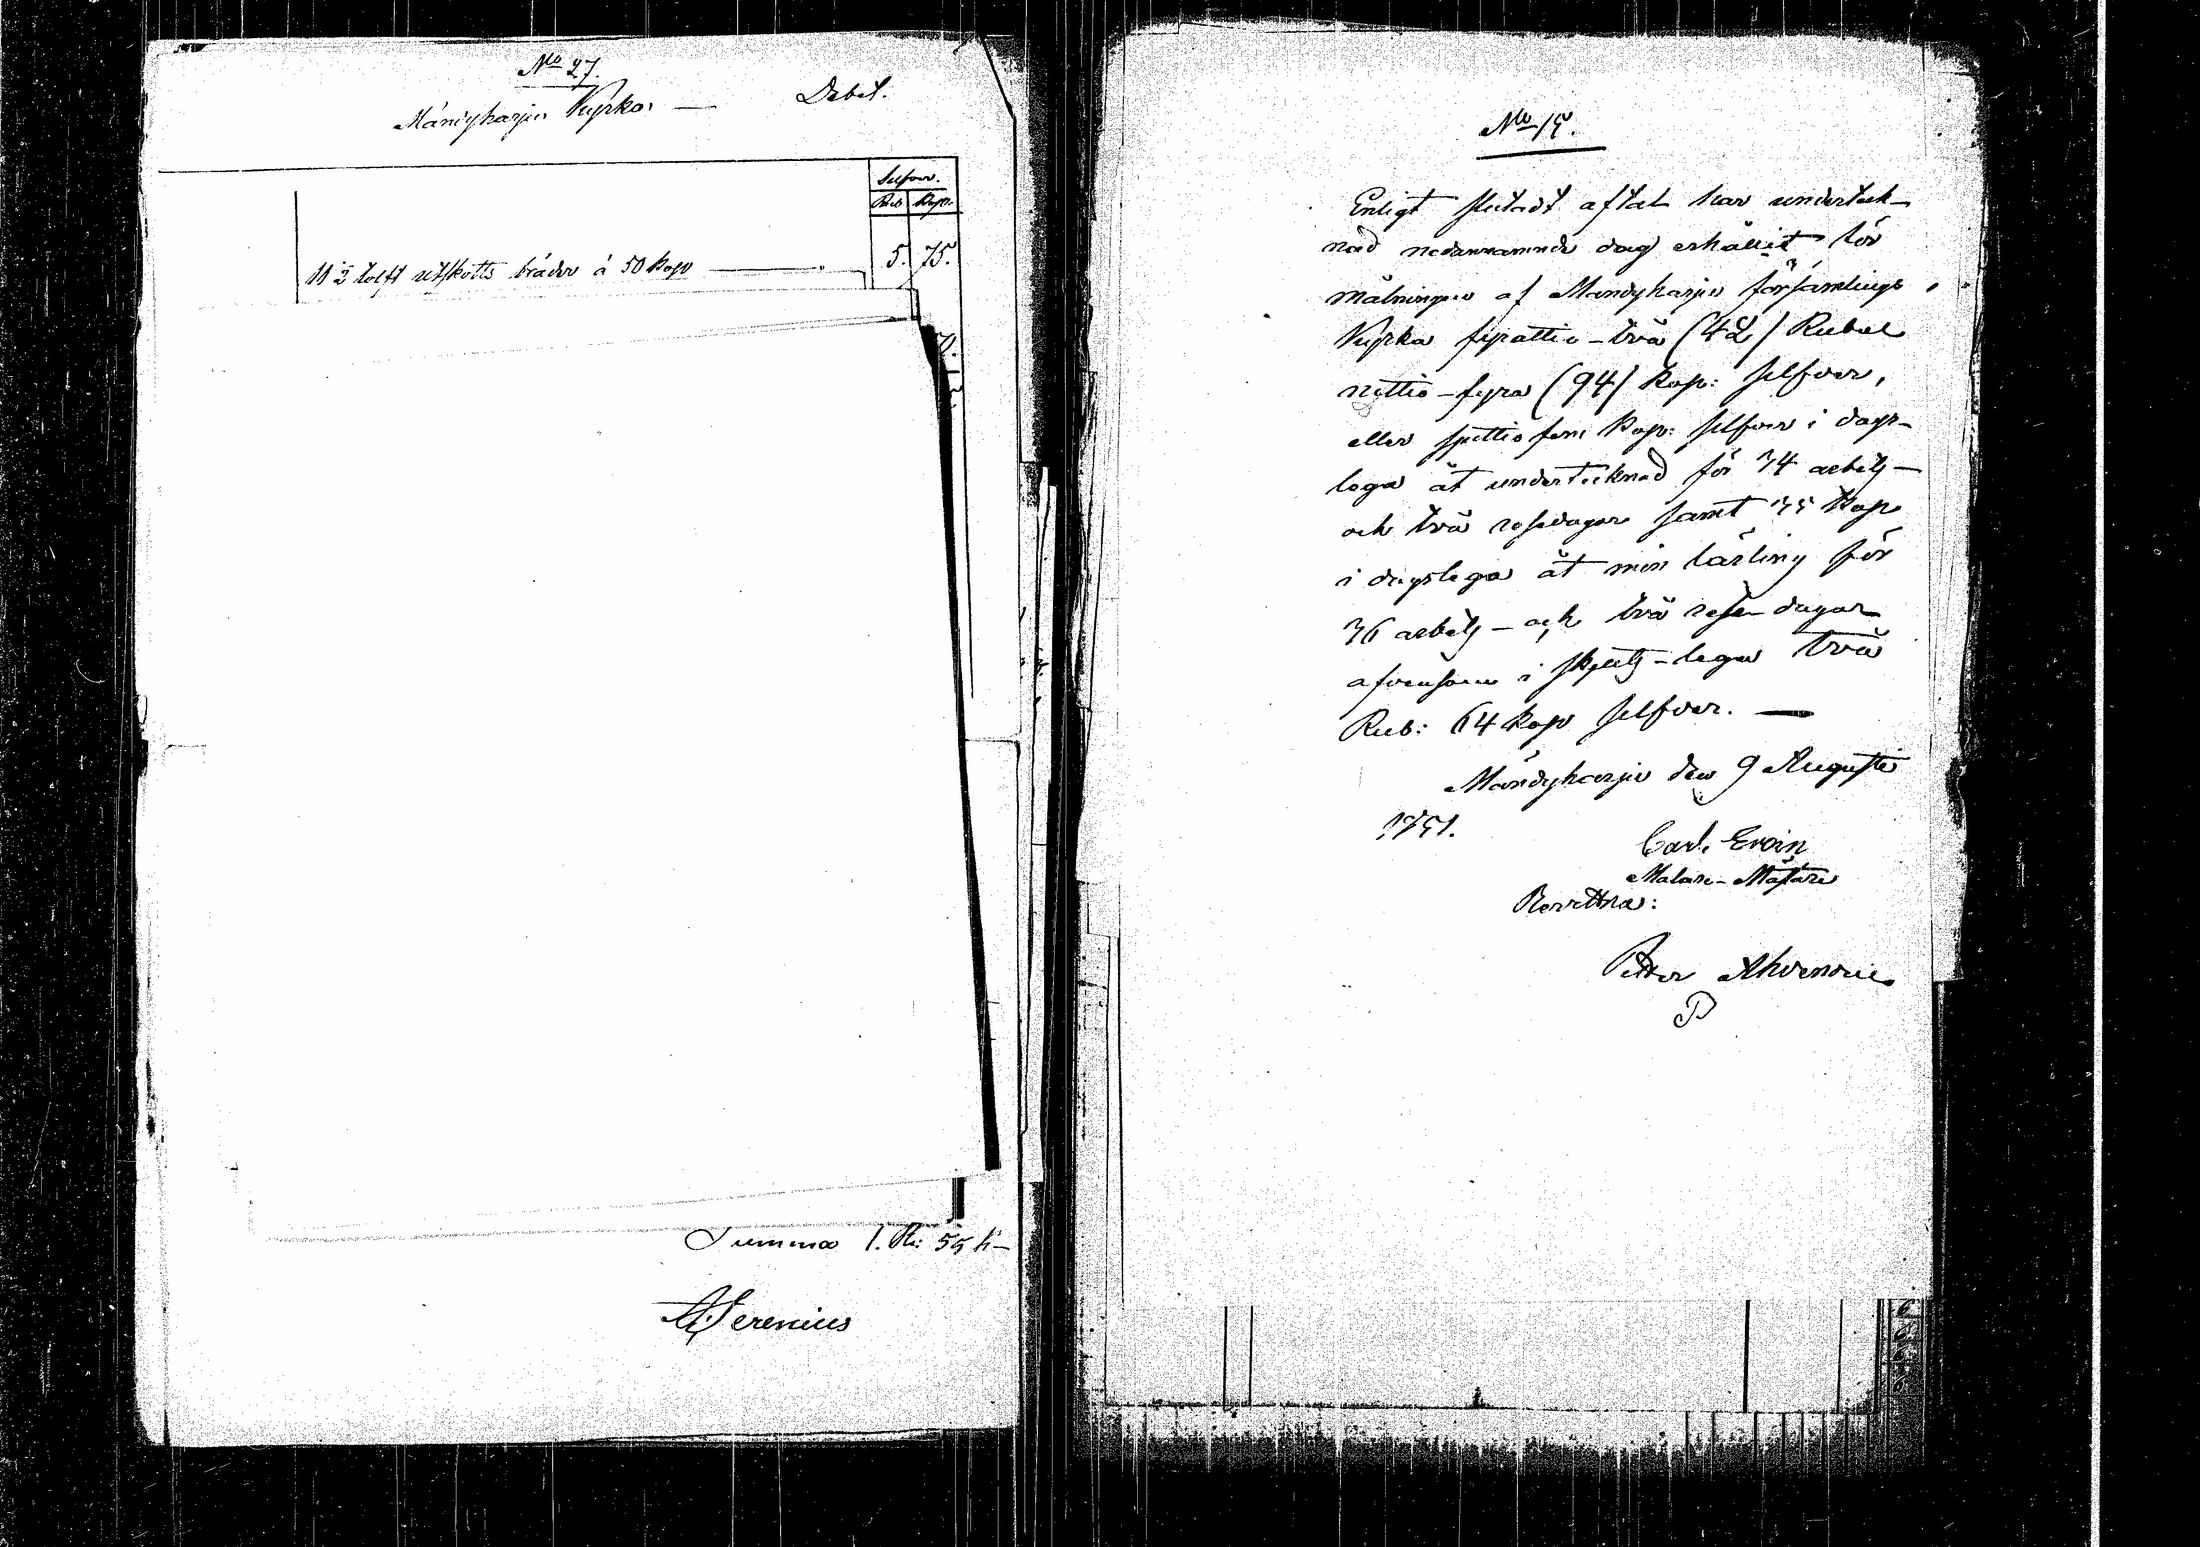 No 27.
Mändyharju Kyrka — Debet.
Silfver.
Rub Kop.
11 ½ tolft utskotts bräder á 50 Kop — 5. 75.
Summa 1. R: 55 k
Serenius
No 15.
Enligt slutadt aftal har underteck-
nad nedannämnde dag erhållit för
målningen af Mändyharju församlings
Kyrka fyratio-två (42) Rubel
nittio-fyra (94) Kop: silfver,
eller sjuttiofem Kop: silfver i dags-
lega åt undertecknad för 34 arbets-
och två resedagar samt 35 Kop
i dagslega åt min lärling för
36 arbets- och två rese dagar
äfvensom i skjuts-lega två
Rub: 64 Kop silfver. —
Mändyharju den 9 Augusti
1851.
Carl
Målare-Mästare
Bevittna:
Petter Ahvenain
P